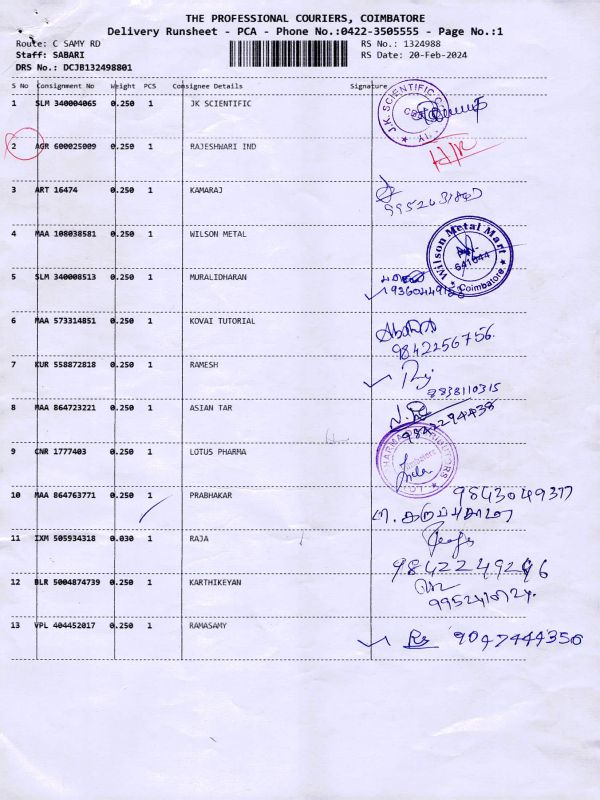 THE PROFESSIONAL COURIERS, COIMBATORE
Delivery Runsheet - PCA - Phone No.:0422-3505555 - Page No.:1
Route: C SAMY RD RS No.: 1324988
Staff: SABARI RS Date: 20-Feb-2024
DRS No.: DCJB132498801
S No Consignment No Weight PCS Consignee Details Signature
1 SLM 340004065 0.250 1 JK SCIENTIFIC
2 AGR 600025009 0.250 1 RAJESHWARI IND
3 ART 16474 0.250 1 KAMARAJ
4 MAA 108038581 0.250 1 WILSON METAL Wilson Metal Mart 641044 Coimbatore
5 SLM 340008513 0.250 1 MURALIDHARAN
6 MAA 573314851 0.250 1 KOVAI TUTORIAL
9842256756.
7 KUR 558872818 0.250 1 RAMESH
8838110315
8 MAA 864723221 0.250 1 ASIAN TAR
9842294438
9 CNR 1777403 0.250 1 LOTUS PHARMA
10 MAA 864763771 0.250 1 PRABHAKAR
11 IXM 505934318 0.030 1 RAJA
12 BLR 5004874739 0.250 1 KARTHIKEYAN
13 VPL 404452017 0.250 1 RAMASAMY 9047444356